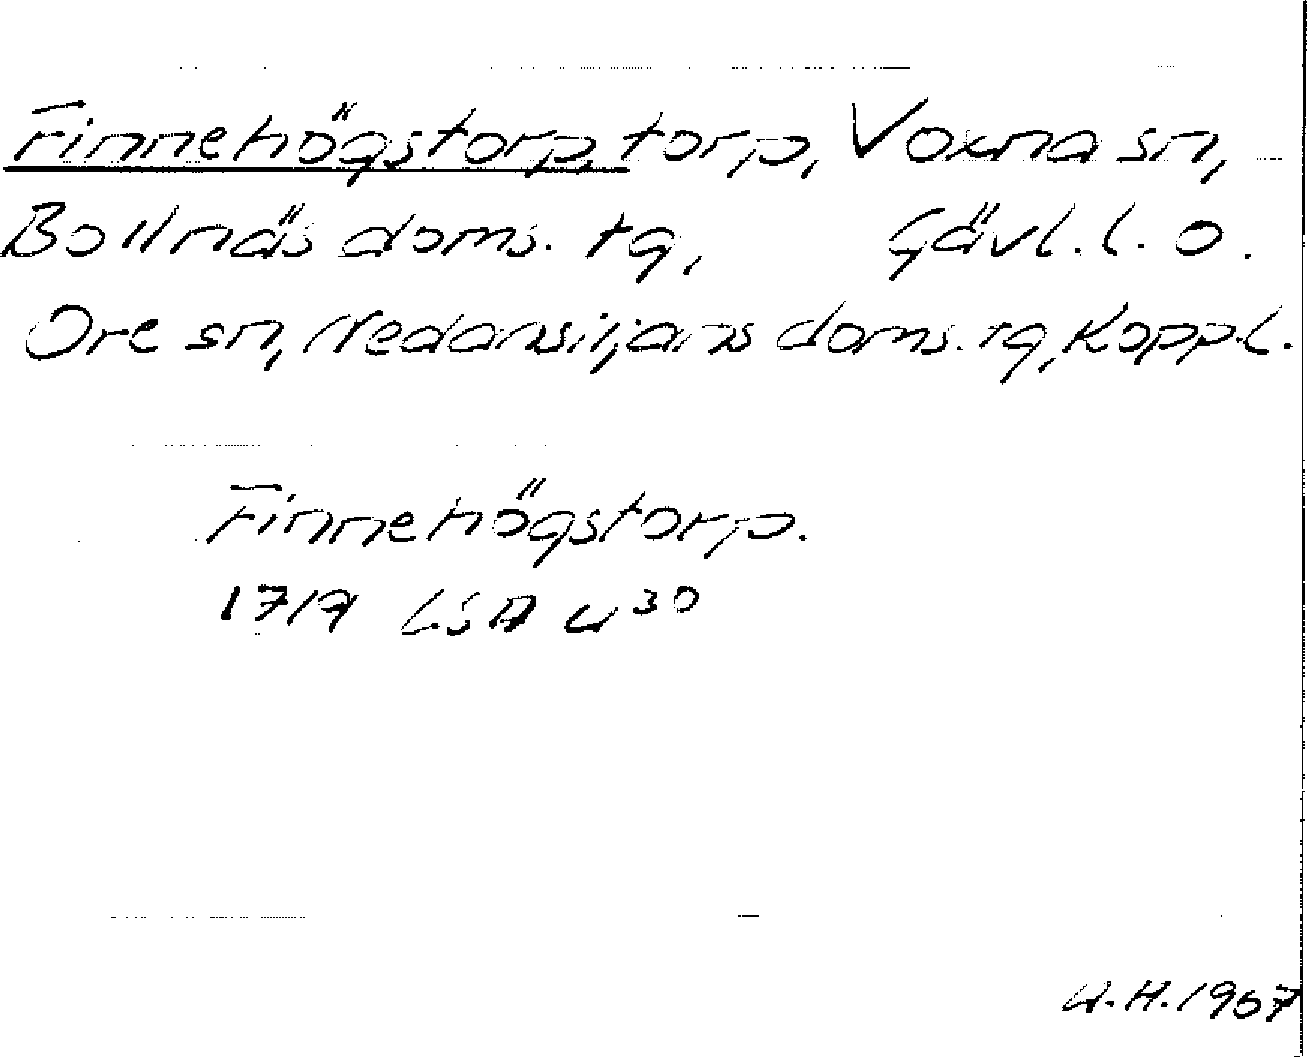 Finnehögstorp, torp, Voxna sn,
Bollnäs doms. tg, Gävl. l. o.
Ore sn, Nedansiljans doms. tg, Kopp. l.
Finnehögstorp.
1719 LSA U30
U.H. 1967